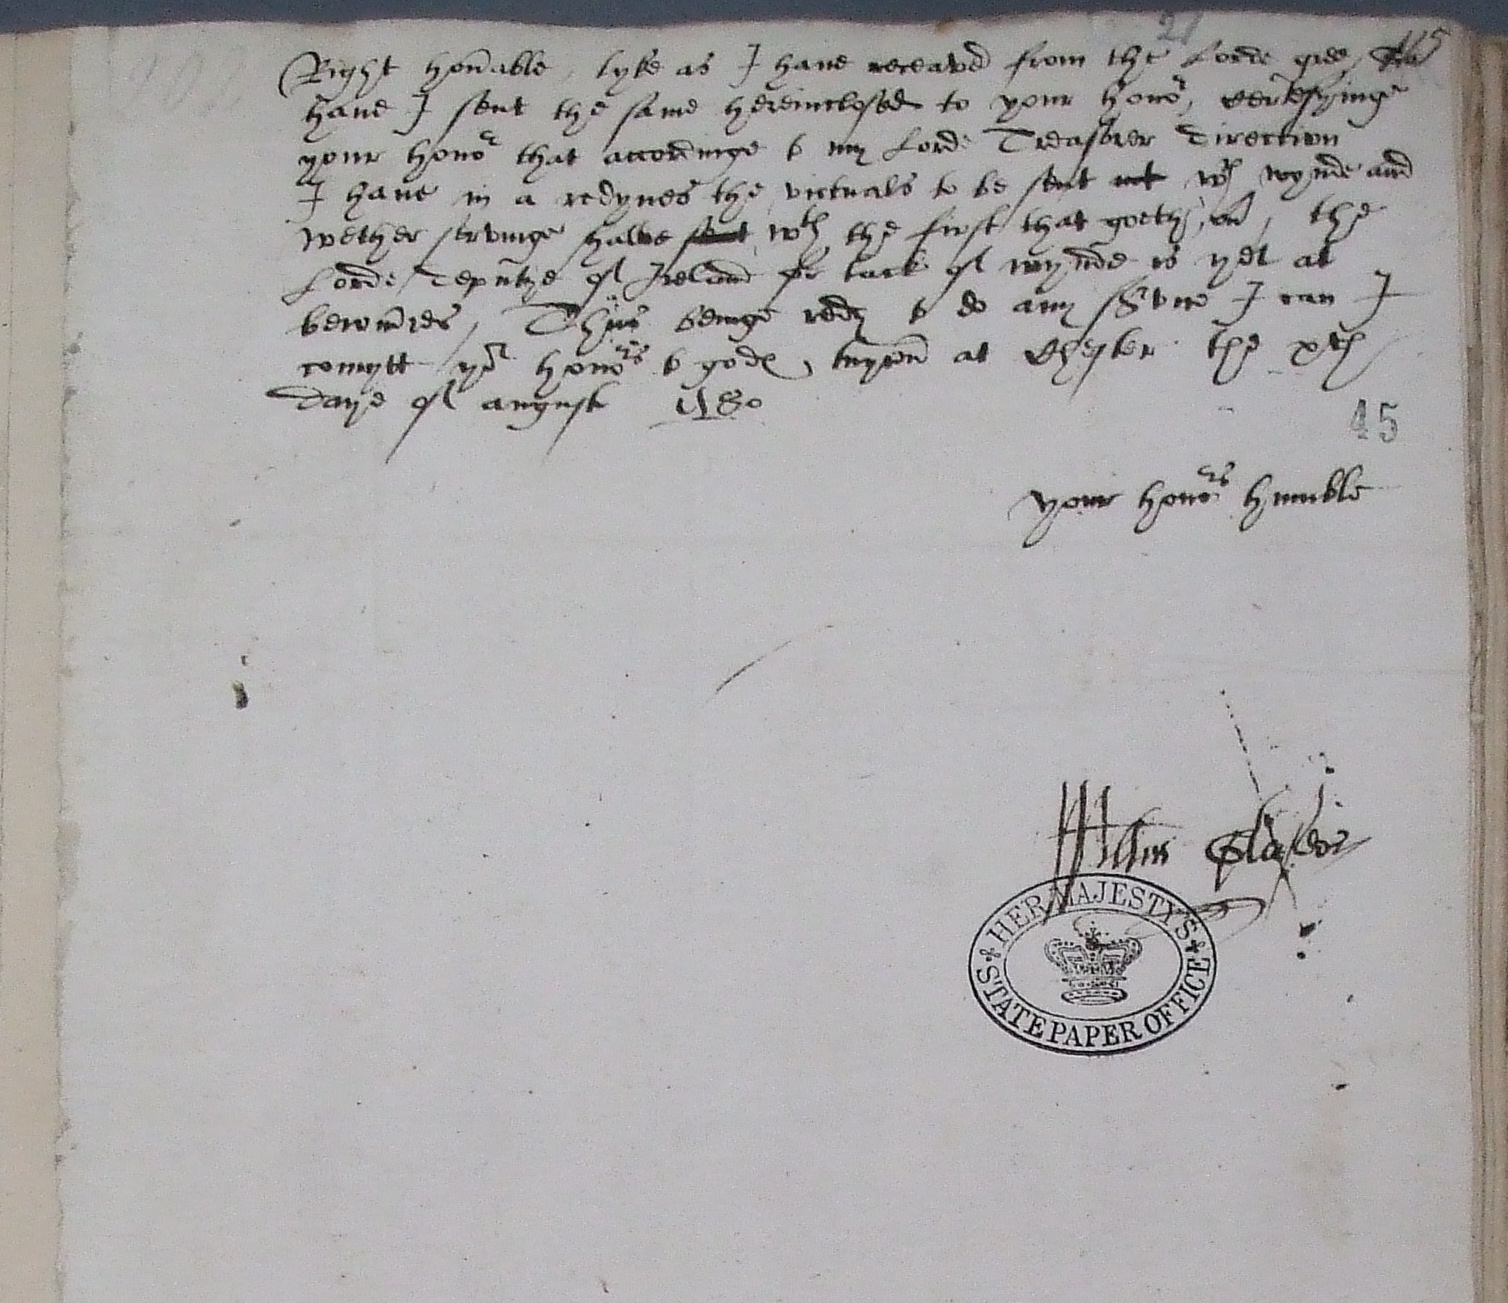 21
115
Right hon'able, lyke as I have receaved from the Lorde grey, so
have I sent the same hereinclosed to your hono', certefyinge
your hono' that accordinge to my Lorde Treasorer Direction
I have in a redynes the victuals to be sent wth wynde and
wether servinge shalbe wth the first that goeth, the
Lorde Deputye of Ireland for lack of wynde is yet at
bewmares, Thus beinge redy to do any s'vice I can I
comytt yor honors to god, at Chester the xth
Daye of august 1580
45
your honors humble
Willm Glaseor
HER MAJESTY'S
STATE PAPER OFFICE